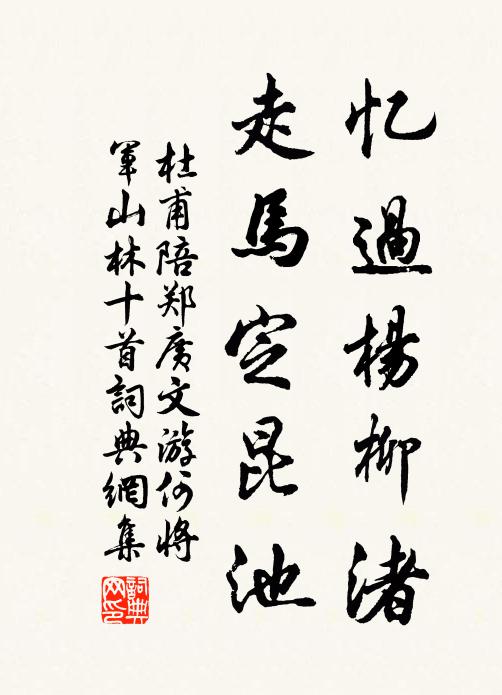 忆過楊柳渚
走馬定昆池
杜甫陪郑廣文游何将
軍山林十首詞典網集
詞典
网印